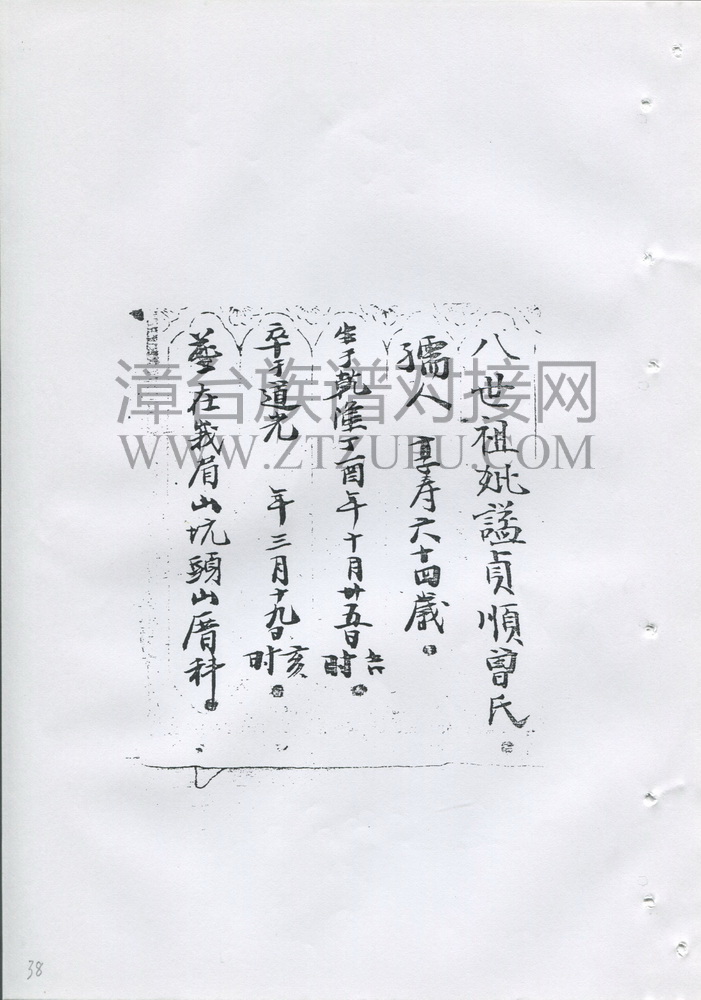 八世祖妣謚貞順曾氏
孺人 享寿六十四歲
生于乾隆丁酉年十月廿五日吉时
卒于道光 年三月十九日亥时
塟在峩眉山坑頭山厝科
漳台族谱对接网
WWW.ZTZUPU.COM
38